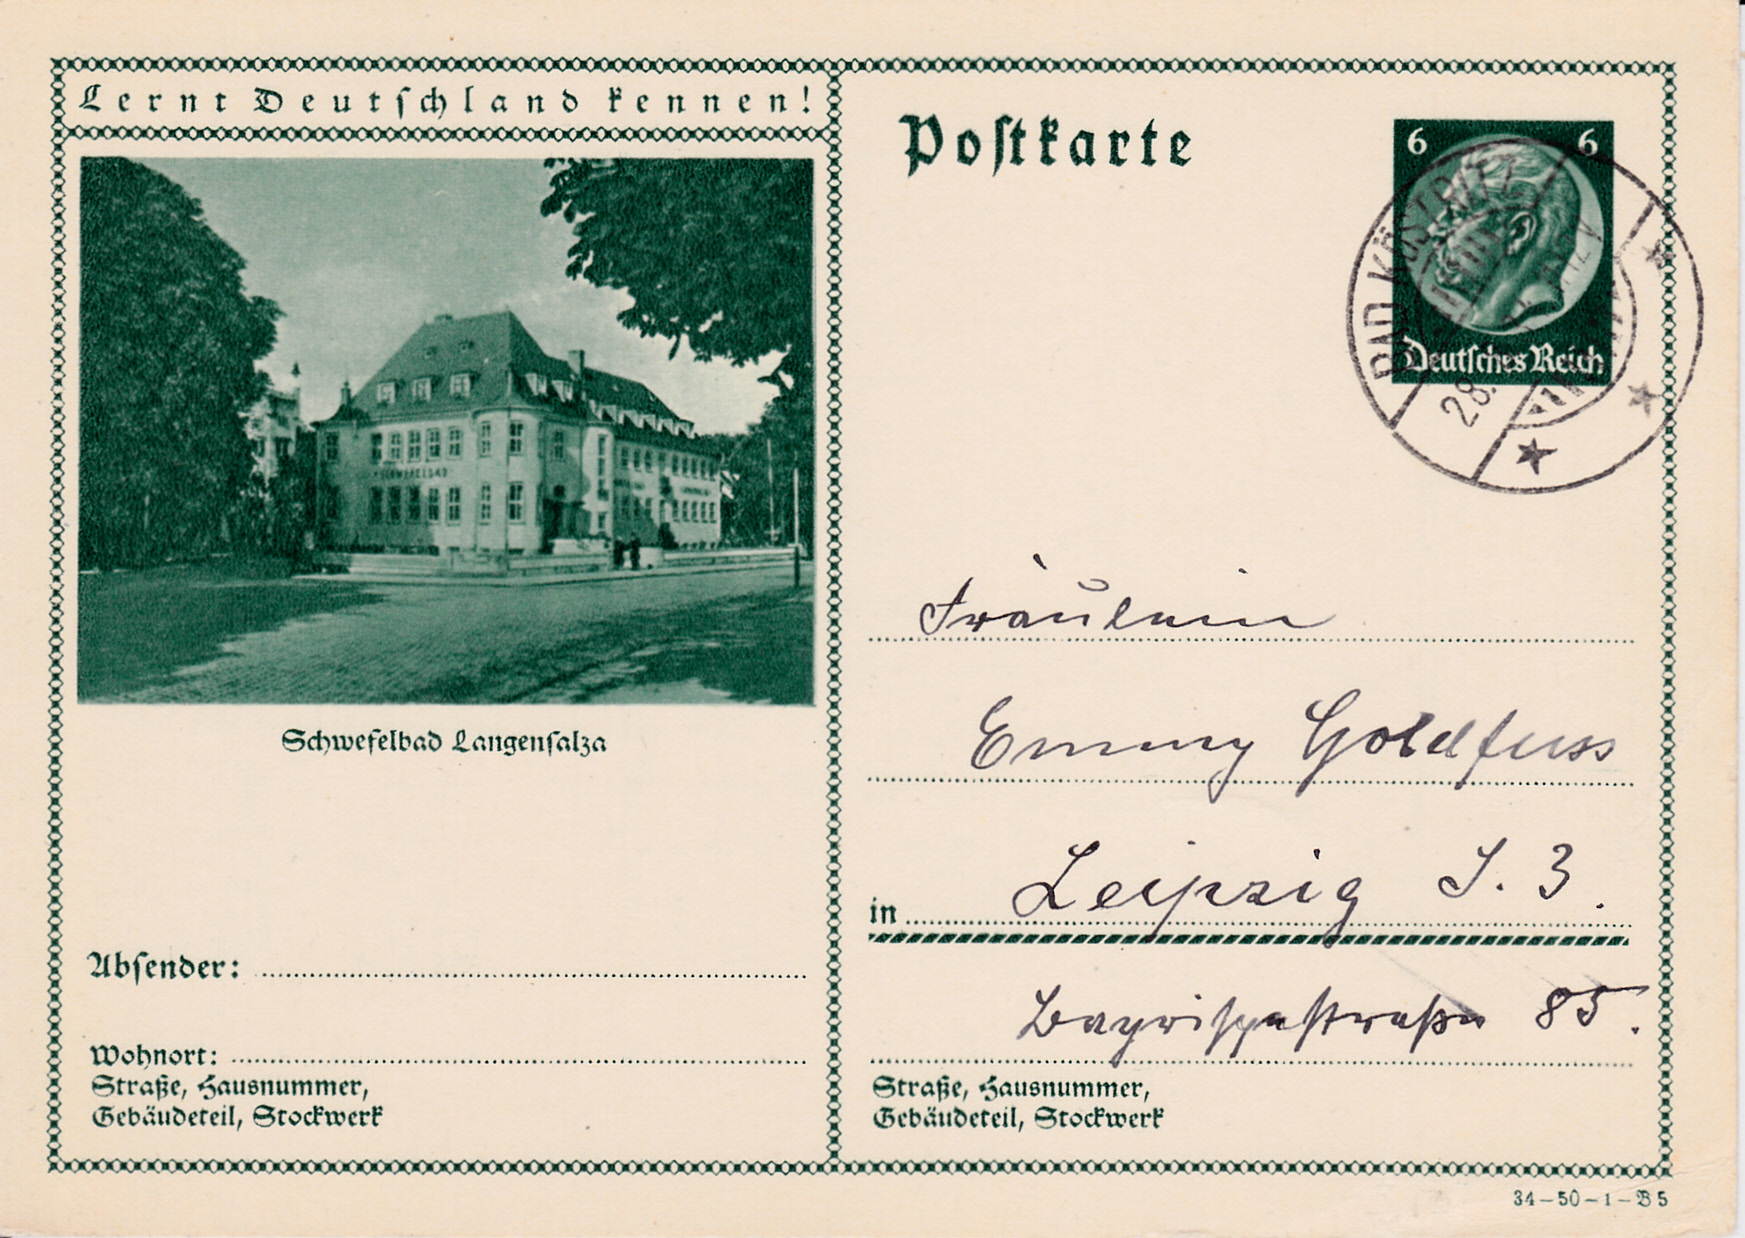 Lernt Deutschland kennen!
Postkarte
6 6
Deutsches Reich
BAD KÖSTRITZ
28.
SCHWEFELBAD
Schwefelbad Langensalza
Fräulein
Emmy Goldfuss
in Leipzig S. 3.
Bayrischestraße 85.
Absender:
Wohnort:
Straße, Hausnummer,
Gebäudeteil, Stockwerk
Straße, Hausnummer,
Gebäudeteil, Stockwerk
34-50-1-B5